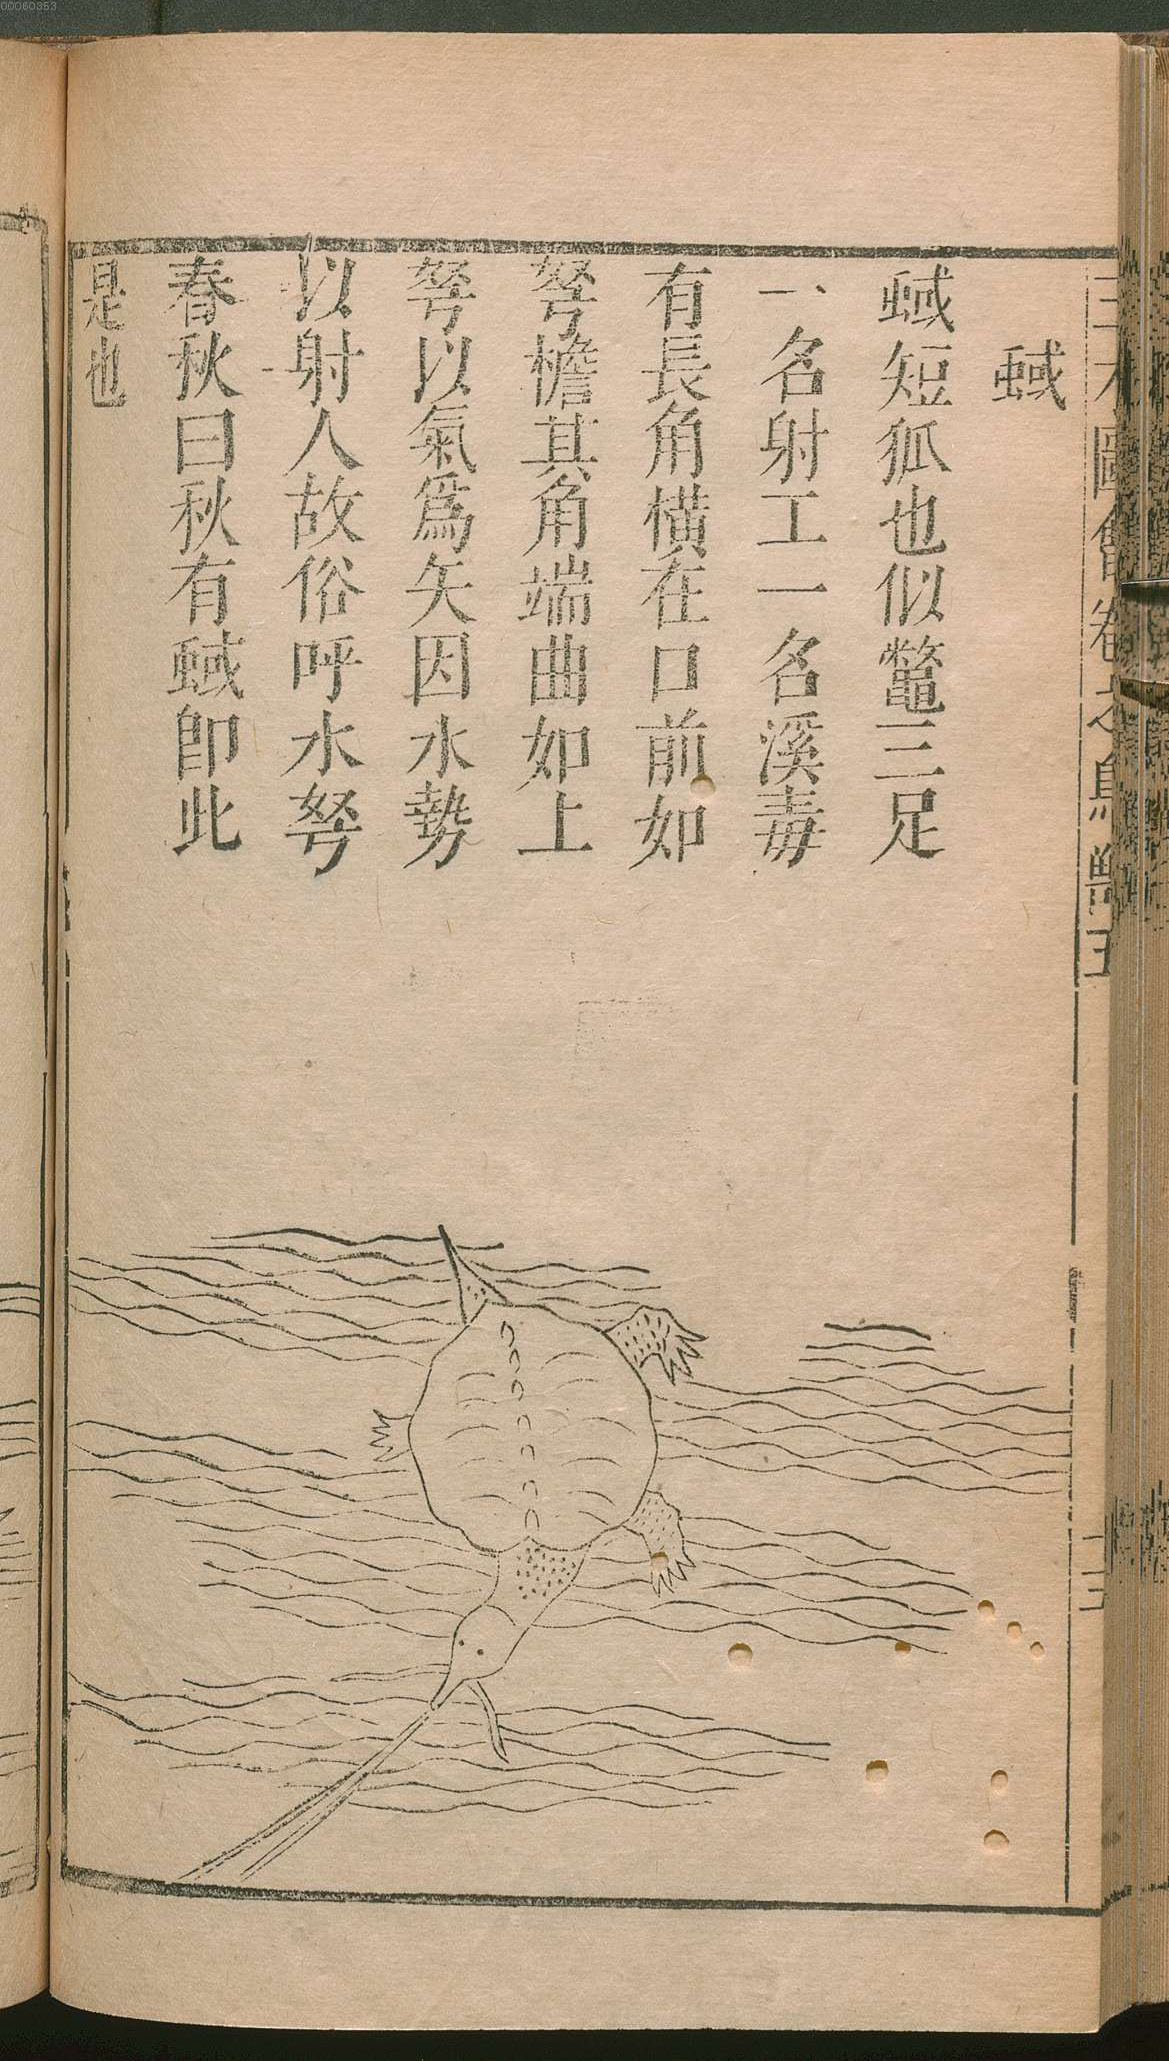 00060353
三才圖會卷之鳥獸五
蜮
蜮短狐也似鼈三足
一名射工一名溪毒
有長角橫在口前如
弩檐其角端曲如上
弩以氣爲矢因水勢
以射人故俗呼水弩
春秋曰秋有蜮卽此
是也